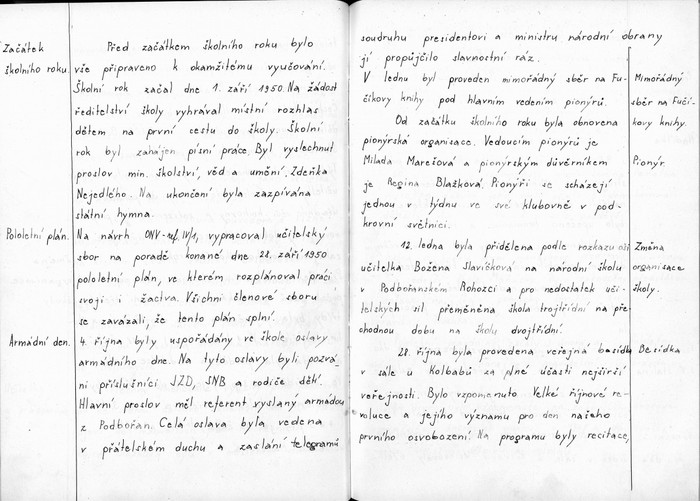 Začátek
školního roku.
Před začátkem školního roku bylo
vše připraveno k okamžitému vyučování.
Školní rok začal dne 1. září 1950. Na žádost
ředitelství školy vyhrával místní rozhlas
dětem na první cestu do školy. Školní
rok byl zahájen písní práce. Byl vyslechnut
proslov min. školství, věd a umění, Zdeňka
Nejedlého. Na ukončení byla zazpívána
státní hymna.
Pololetní plán.
Na návrh ONV-ref. IV/1, vypracoval učitelský
sbor na poradě konané dne 22. září 1950
pololetní plán, ve kterém rozplánoval práci
svoji i žactva. Všichni členové sboru
se zavázali, že tento plán splní.
Armádní den.
4. října byly uspořádány ve škole oslavy
armádního dne. Na tyto oslavy byli pozvá-
ni příslušníci JZD, SNB a rodiče dětí.
Hlavní proslov měl referent vyslaný armádou
z Podbořan. Celá oslava byla vedena
v přátelském duchu a zaslání telegramů
soudruhu presidentovi a ministru národní obrany
jí propůjčilo slavnostní ráz.
V lednu byl proveden mimořádný sběr na Fu-
číkovy knihy pod hlavním vedením pionýrů.
Mimořádný
sběr na Fučí-
kovy knihy.
Od začátku školního roku byla obnovena
pionýrská organisace. Vedoucím pionýrů je
Milada Marešová a pionýrským důvěrníkem
je Regina Blažková. Pionýři se scházejí
jednou v týdnu ve své klubovně v pod-
krovní světnici.
Pionýr.
12. ledna byla přidělena podle rozkazu
učitelka Božena Slavíčková na národní školu
v Podbořanském Rohozci a pro nedostatek uči-
telských sil přeměněna škola trojtřídní na pře-
chodnou dobu na školu dvojtřídní.
Změna
organisace
školy.
28. října byla provedena veřejná besídka
v sále u Kolbabů za plné účasti nejširší
veřejnosti. Bylo vzpomenuto Velké říjnové re-
voluce a jejího významu pro den našeho
prvního osvobození. Na programu byly recitace,
Besídka